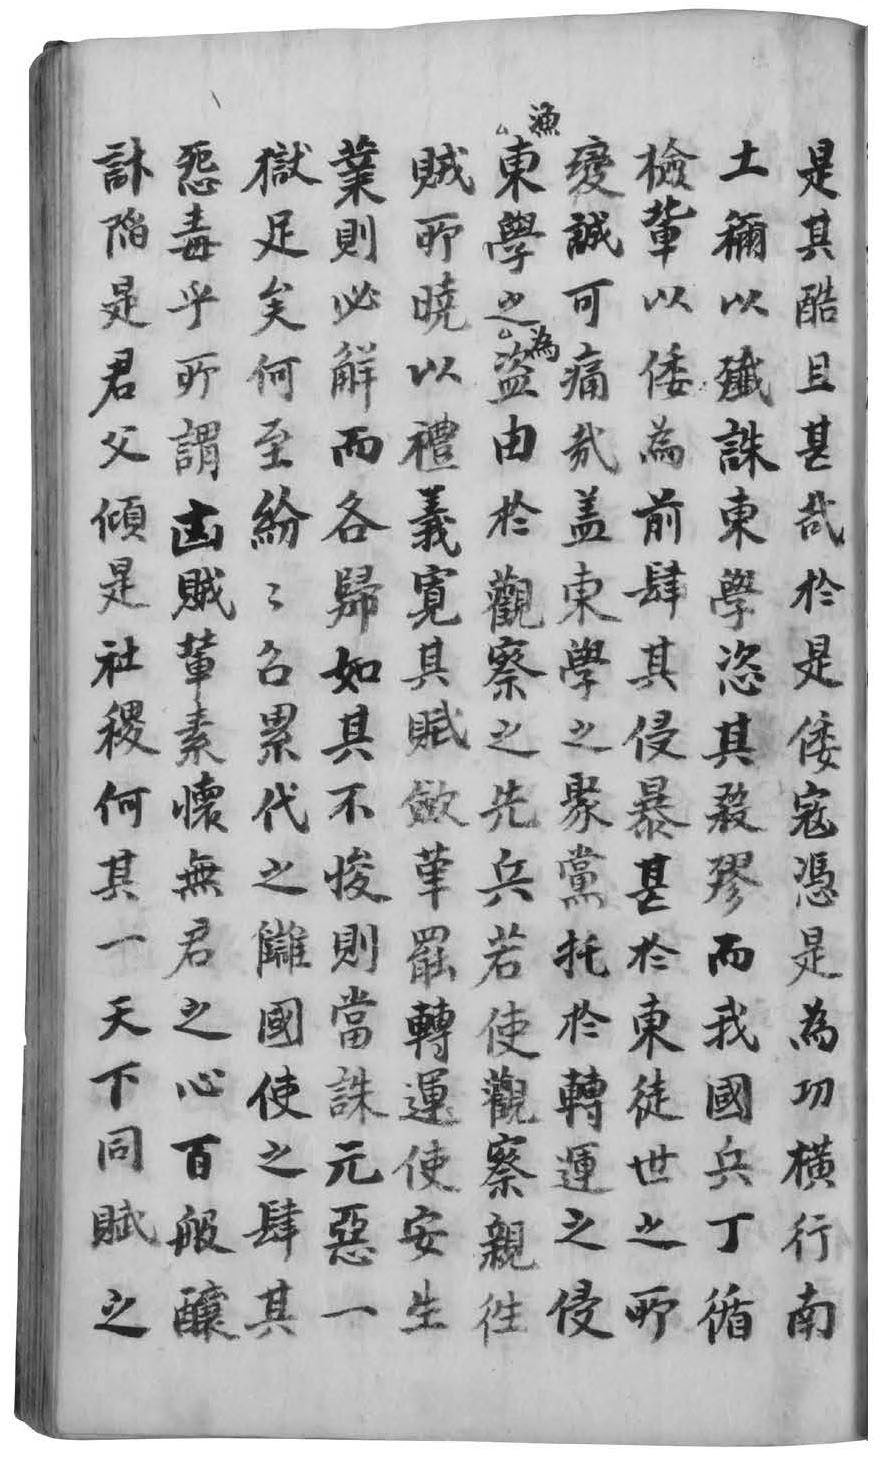 是其酷且甚哉於是倭寇憑是為功橫行南
土稱以殲誅東學恣其殺戮而我國兵丁循
檢輩以倭為前肆其侵暴甚於東徒世之所
變誠可痛哉盖東學之聚黨托於轉運之侵
漁
東學之盜由於觀察之先兵若使觀察親往
為
賊所曉以禮義寬其賦斂革罷轉運使安生
業則必解而各歸如其不悛則當誅元惡一
獄足矣何至紛〻召累代之讎國使之肆其
怨毒乎所謂凶賊輩素懷無君之心百般釀
訹陷是君父傾是社稷何其一天下同賦之